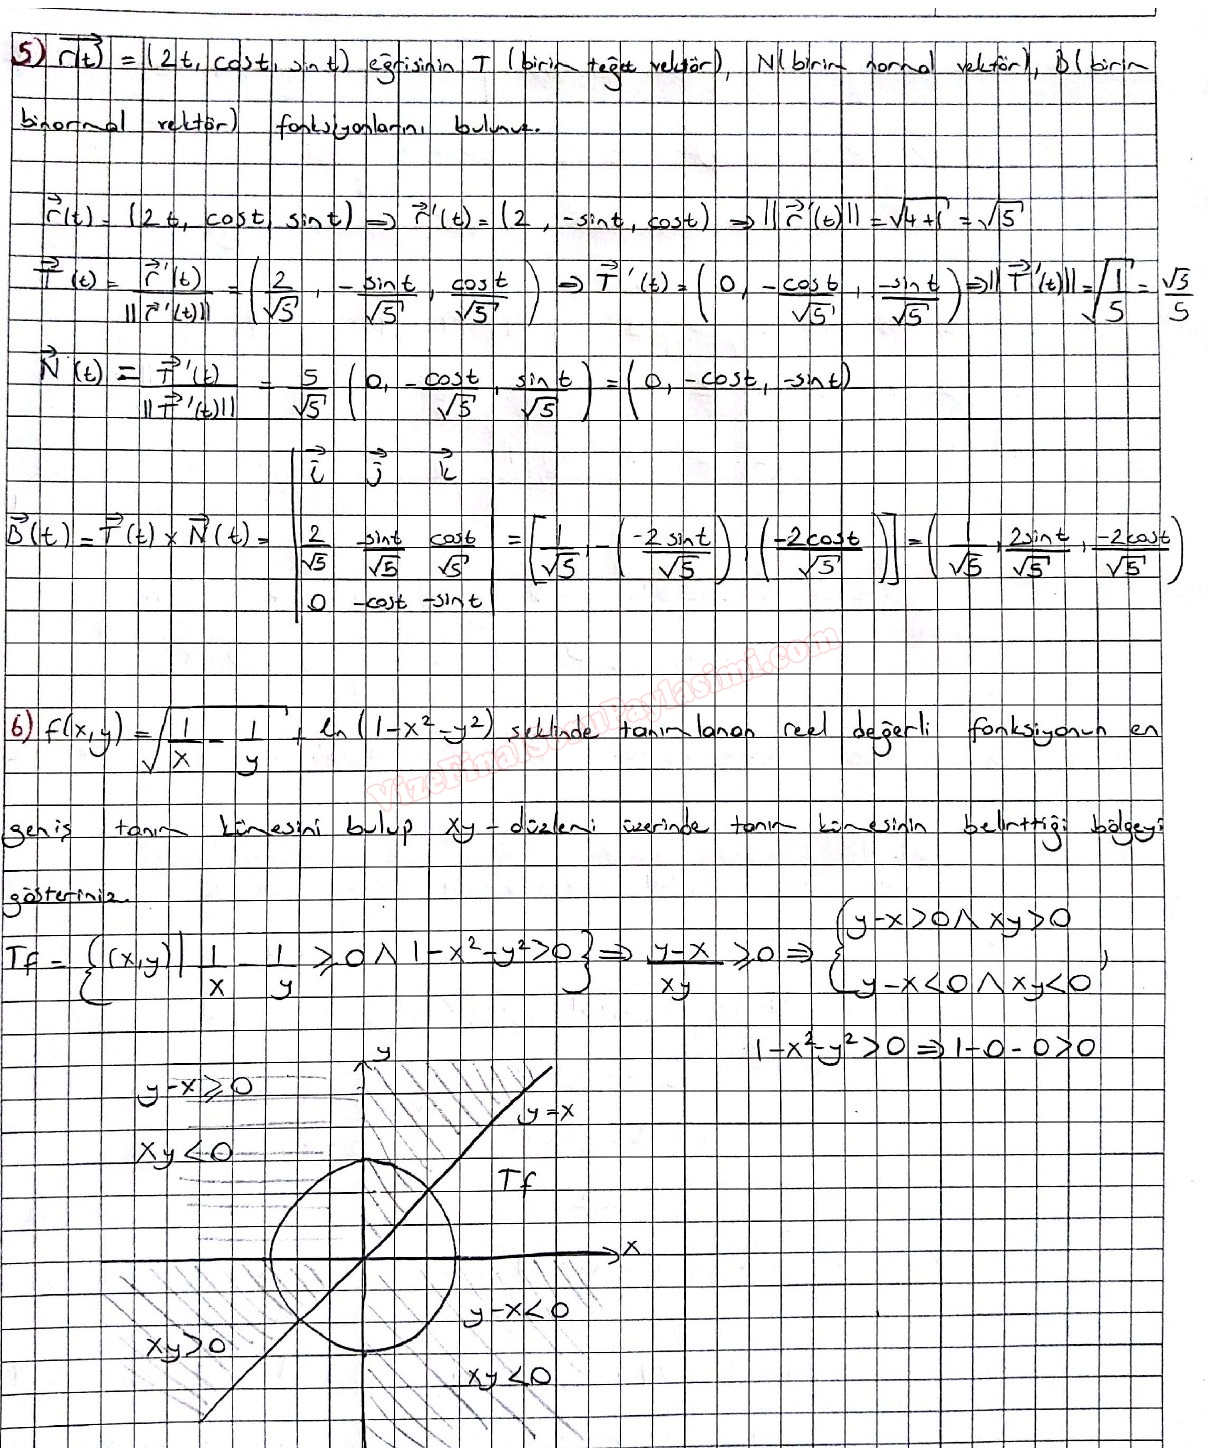 5) r⃗(t) = (2t, cost, sint) eğrisinin T (birim teğet vektör), N(birim normal vektör), B(birim
binormal vektör) fonksiyonlarını bulunuz.
r⃗(t) = (2t, cost, sint) ⇒ r⃗'(t) = (2, -sint, cost) ⇒ ||r⃗'(t)|| = √(4+1) = √5
T⃗(t) = r⃗'(t)/||r⃗'(t)|| = (2/√5, -sint/√5, cost/√5) ⇒ T⃗'(t) = (0, -cost/√5, -sint/√5) ⇒ ||T⃗'(t)|| = √(1/5) = √5/5
N⃗(t) = T⃗'(t)/||T⃗'(t)|| = 5/√5 (0, -cost/√5, sint/√5) = (0, -cost, -sint)
i⃗ j⃗ k⃗
B⃗(t) = T⃗(t) x N⃗(t) = | 2/√5 -sint/√5 cost/√5 | = [1/√5, -(-2sint/√5), (-2cost/√5)] = (1/√5, 2sint/√5, -2cost/√5)
0 -cost -sint
VizeFinalSoruPaylasimi.com
6) f(x,y) = √(1/x - 1/y) + ln(1-x²-y²) şeklinde tanımlanan reel değerli fonksiyonun en
geniş tanım kümesini bulup xy-düzlemi üzerinde tanım kümesinin belirttiği bölgeyi
gösteriniz.
Tf = {(x,y) | 1/x - 1/y ≥ 0 ∧ 1-x²-y² > 0} ⇒ (y-x)/xy ≥ 0 ⇒ { y-x>0 ∧ xy>0
y-x<0 ∧ xy<0 ,
1-x²-y²>0 ⇒ 1-0-0>0
y
y-x≥0
y=x
xy<0
Tf
x
y-x<0
xy>0
xy<0